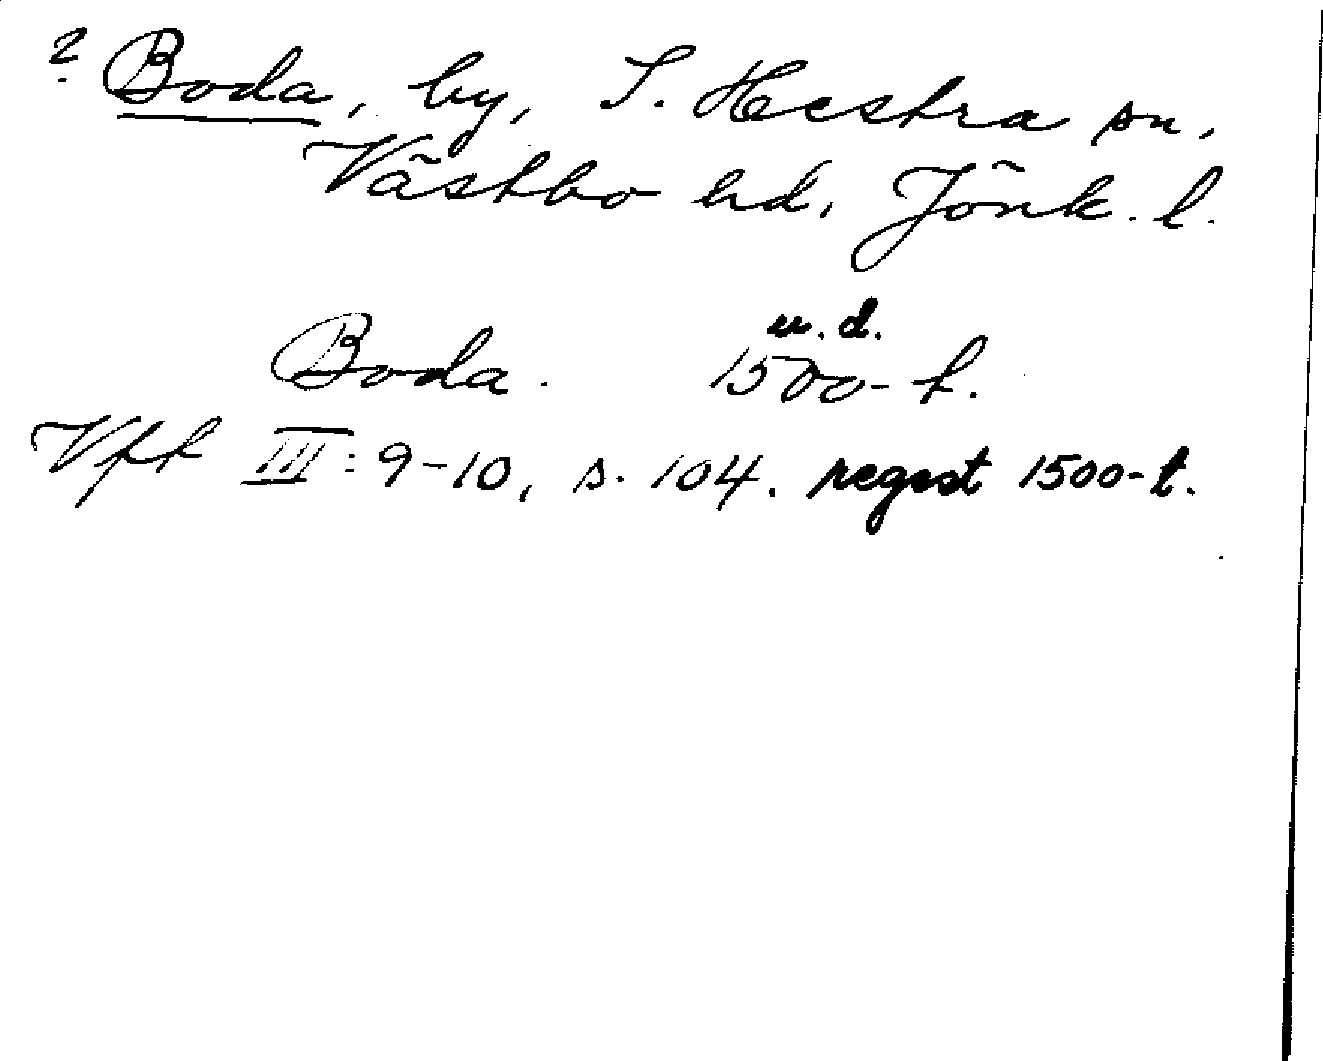 ? Boda, by, S. Hestra sn,
Västbo hd, Jönk. l.
u. d.
Boda. 1500-t.
Vft III: 9-10, s. 104. regest 1500-t.